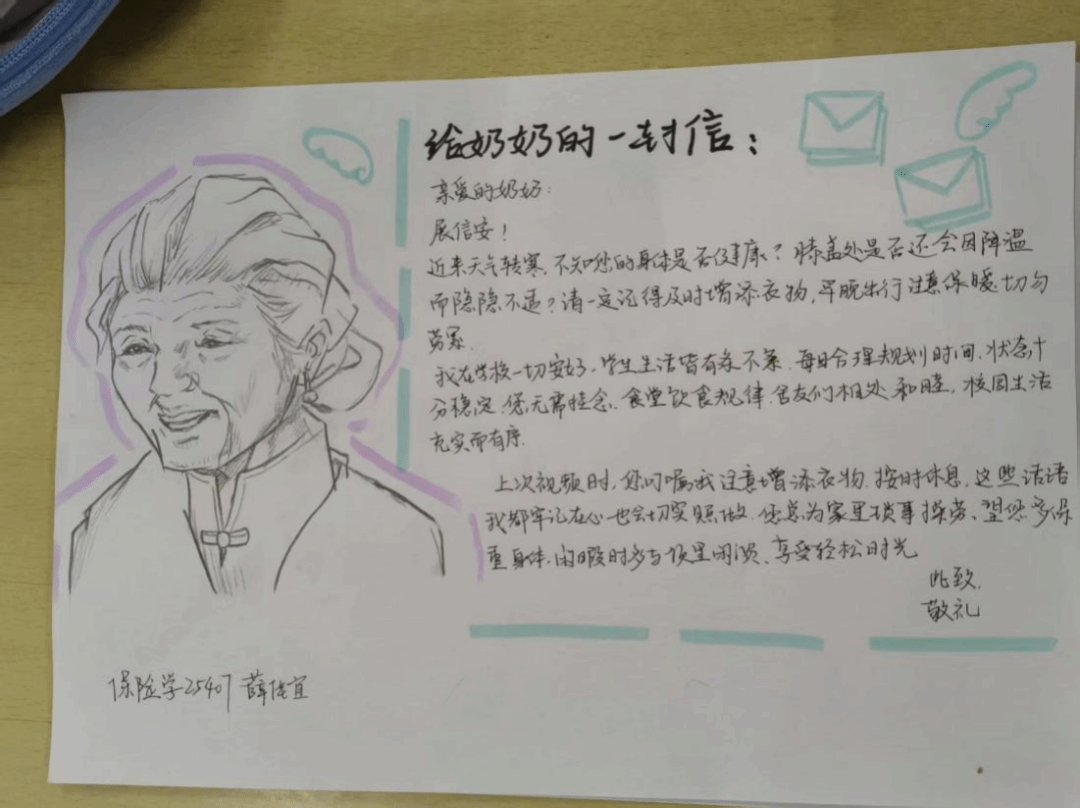 给奶奶的一封信：
亲爱的奶奶：
展信安！
近来天气转寒，不知您的身体是否健康？膝盖处是否还会因降温
而隐隐不适？请一定记得及时增添衣物，早晚出行注意保暖，切勿
劳累。
我在学校一切安好，学生生活皆有条不紊，每日合理规划时间，状态十
分稳定，您无需挂念。食堂饮食规律，舍友们相处和睦，校园生活
充实而有序。
上次视频时，您叮嘱我注意增添衣物，按时休息，这些话语
我都牢记在心也会切实照做。您总为家里琐事操劳、望您多保
重身体，闲暇时多与邻里闲谈、享受轻松时光
此致，
敬礼
保险学25407 薛佳宜